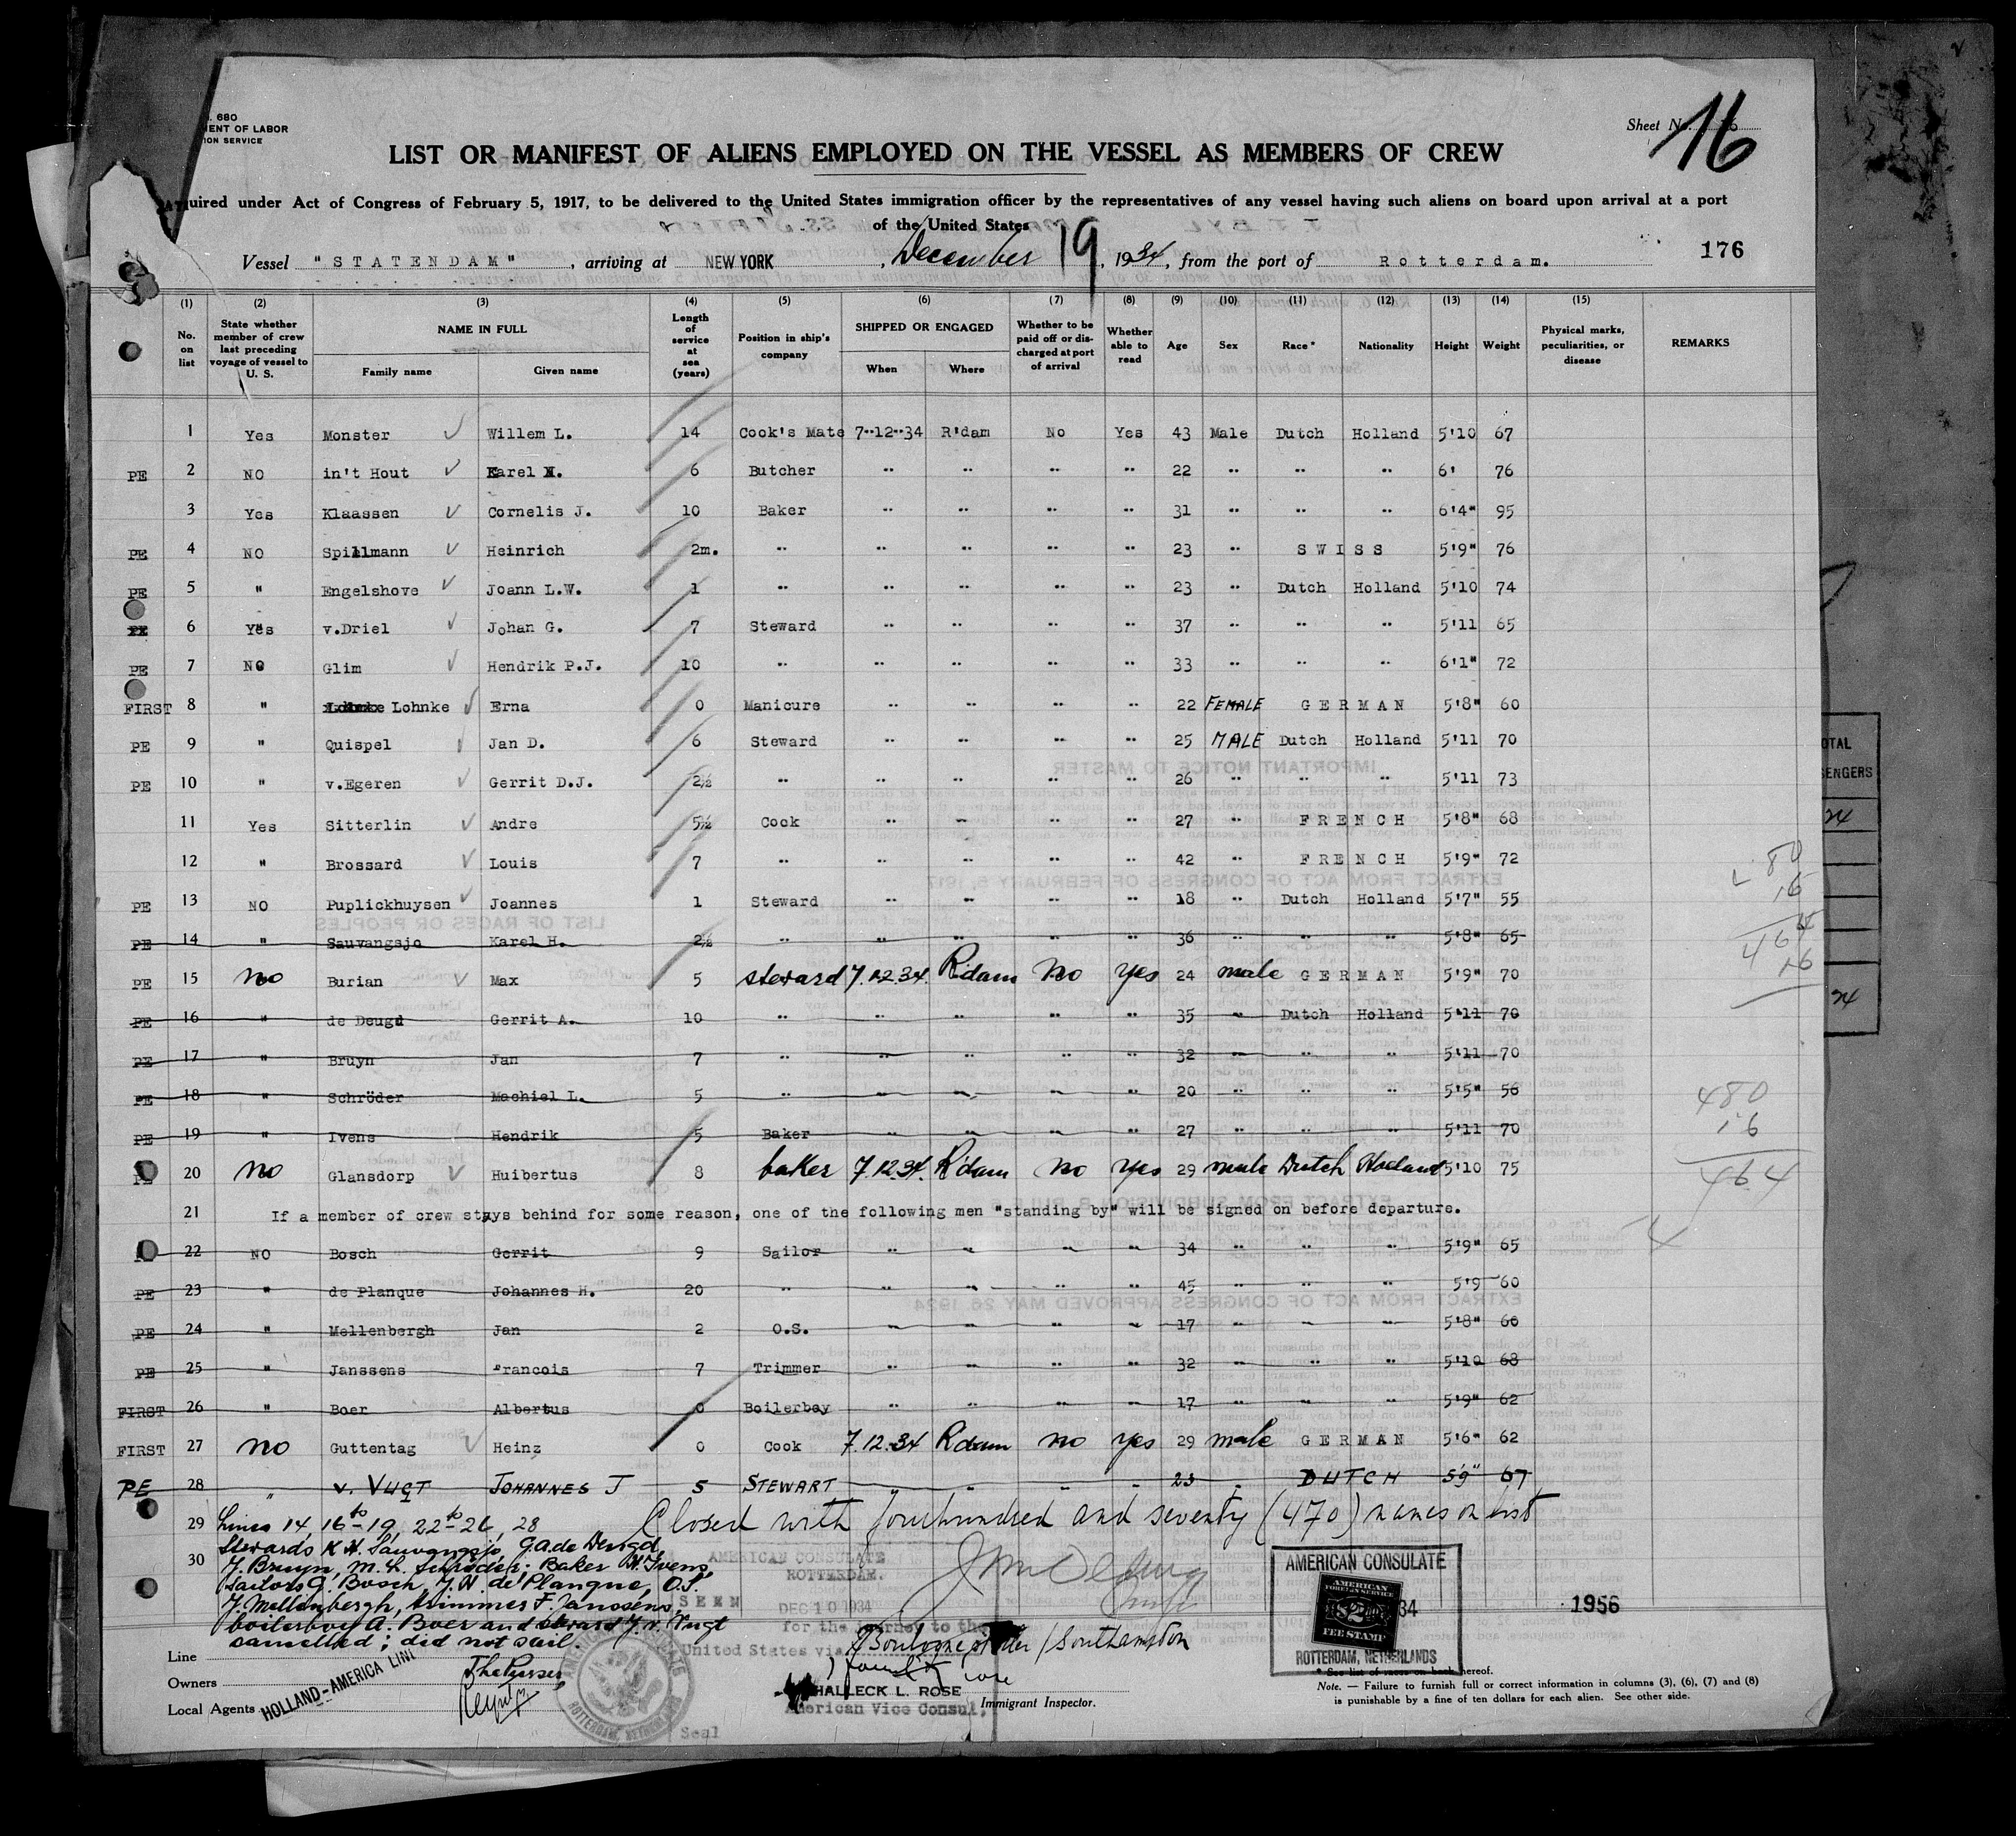 680
MENT OF LABOR
ION SERVICE
Sheet No. 16
16
LIST OR MANIFEST OF ALIENS EMPLOYED ON THE VESSEL AS MEMBERS OF CREW
quired under Act of Congress of February 5, 1917, to be delivered to the United States immigration officer by the representatives of any vessel having such aliens on board upon arrival at a port
of the United States
176
Vessel "STATENDAM", arriving at NEW YORK, December 19, 1934, from the port of Rotterdam.
(1) (2) (3) (4) (5) (6) (7) (8) (9) (10) (11) (12) (13) (14) (15)
No. on list State whether member of crew last preceding voyage of vessel to U. S. NAME IN FULL Family name Given name Length of service at sea (years) Position in ship's company SHIPPED OR ENGAGED When Where Whether to be paid off or discharged at port of arrival Whether able to read Age Sex Race* Nationality Height Weight Physical marks, peculiarities, or disease REMARKS
1 Yes Monster Willem L. 14 Cook's Mate 7-12-34 R'dam No Yes 43 Male Dutch Holland 5'10 67
PE 2 NO in't Hout Karel 6 Butcher " " " " 22 " " " 6' 76
3 Yes Klaassen Cornelis J. 10 Baker " " " " 31 " " " 6'4" 95
PE 4 NO Spillmann Heinrich 2m. " " " " " 23 " SWISS 5'9" 76
PE 5 " Engelshove Joann L.W. 1 " " " " " 23 " Dutch Holland 5'10 74
6 Yes v.Driel Johan G. 7 Steward " " " " 37 " " " 5'11 65
PE 7 NO Glim Hendrik P.J. 10 " " " " " 33 " " " 6'1" 72
FIRST 8 " Lohnke Erna 0 Manicure " " " " 22 FEMALE GERMAN 5'8" 60
PE 9 " Quispel Jan D. 6 Steward " " " " 25 MALE Dutch Holland 5'11 70
PE 10 " v.Egeren Gerrit D.J. 2½ " " " " " 26 " " " 5'11 73
11 Yes Sitterlin Andre 5½ Cook " " " " 27 " FRENCH 5'8" 68
12 " Brossard Louis 7 " " " " " 42 " FRENCH 5'9" 72
PE 13 NO Puplickhuysen Joannes 1 Steward " " " " 18 " Dutch Holland 5'7" 55
PE 14 " Sauvangsjo Karel H. 2½ " " " " " 36 " " " 5'8" 65
PE 15 no Burian Max 5 steward 7.12.34. R'dam no yes 24 male GERMAN 5'9" 70
PE 16 " de Deugd Gerrit A. 10 " " " " " 35 " Dutch Holland 5'11 70
PE 17 " Bruyn Jan 7 " " " " " 32 " " " 5'11 70
PE 18 " Schröder Machiel L. 5 " " " " " 20 " " " 5'5" 56
PE 19 " Ivens Hendrik 5 Baker " " " " 27 " " " 5'11 70
20 no Glansdorp Huibertus 8 baker 7.12.34. R'dam no yes 29 male Dutch Holland 5'10 75
21 If a member of crew stays behind for some reason, one of the following men "standing by" will be signed on before departure.
22 NO Bosch Gerrit 9 Sailor " " " " 34 " " " 5'9" 65
PE 23 " de Planque Johannes H. 20 " " " " " 45 " " " 5'9 60
PE 24 " Mellenbergh Jan 2 O.S. " " " " 17 " " " 5'8" 60
PE 25 " Janssens Francois 7 Trimmer " " " " 32 " " " 5'10 68
FIRST 26 " Boer Albertus 0 Boilerboy " " " " 17 " " " 5'9" 62
FIRST 27 no Guttentag Heinz 0 Cook 7.12.34 R'dam no yes 29 male GERMAN 5'6" 62
PE 28 " v. VUGT JOHANNES J 5 STEWART " " " " 23 " DUTCH 5'9" 67
29 Lines 14, 16 to 19, 22 to 26, 28 Closed with fourhundred and seventy (470) names on list
Stewards K H. Sauvangsjo, G.A. de Deugd,
30 J. Bruyn, M. L. Schröder; Baker H. Ivens,
sailors G. Bosch, J. H. de Planque, O.S.
J. Mellenbergh, trimmer F. Janssens,
boilerboy A. Boer and steward J. v. Vugt
cancelled; did not sail.
AMERICAN CONSULATE
ROTTERDAM.
SEEN DEC 10 1934
for the journey to the
United States via Boulogne s/mer/Southampton
HALLECK L. ROSE
American Vice Consul,
Seal
AMERICAN CONSULATE
AMERICAN
FOREIGN SERVICE
FEE STAMP
34
ROTTERDAM, NETHERLANDS
1956
Line
Owners
Local Agents
HOLLAND-AMERICA LINE
The Purser
Immigrant Inspector.
* See list of races on back hereof.
Note. — Failure to furnish full or correct information in columns (3), (6), (7) and (8)
is punishable by a fine of ten dollars for each alien. See other side.
480
16
464
OTAL
SENGERS